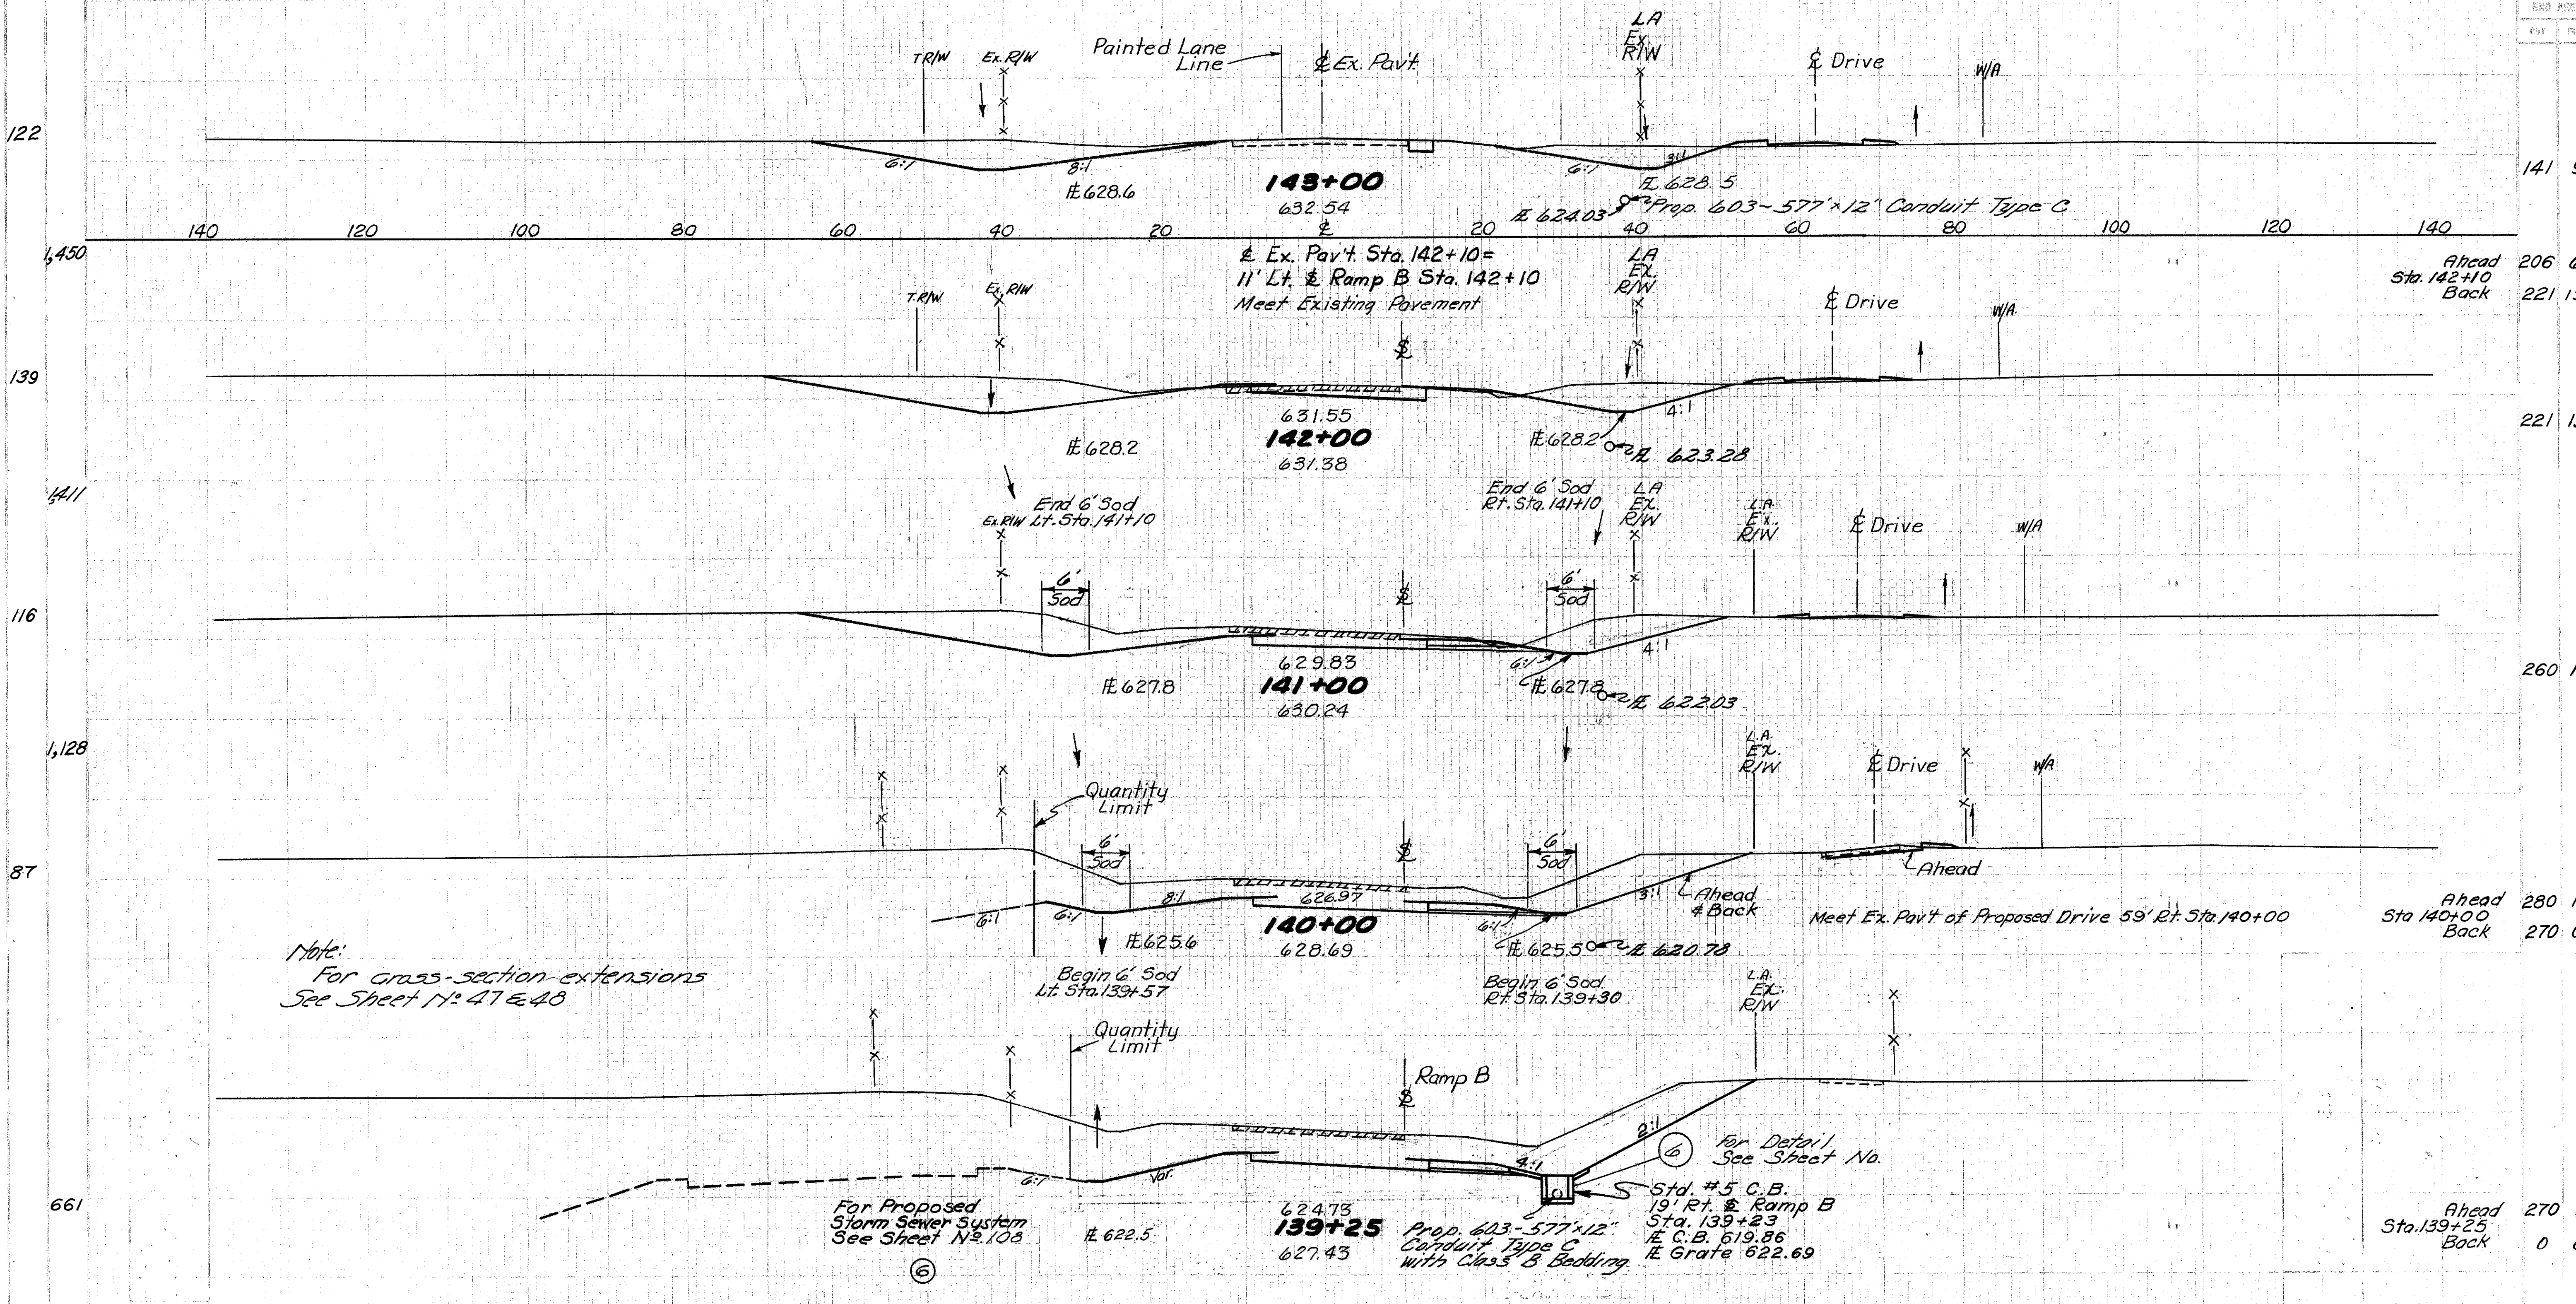 LA
Ex.
R/W
T R/W
Ex. R/W
Painted Lane
Line
℄ Ex. Pav't.
℄ Drive
W/A
122
6:1
8:1
6:1
3:1
℄ 628.6
143+00
632.54
℄ 628.5
℄ 624.03
Prop. 603-577'×12" Conduit Type C
141
140 120 100 80 60 40 20 ℄ 20 40 60 80 100 120 140
1,450
℄ Ex. Pav't. Sta. 142+10=
11' Lt. ℄ Ramp B Sta. 142+10
Meet Existing Pavement
LA
EX.
R/W
Ahead 206
Sta. 142+10
Back 221
T.R/W
Ex. R/W
℄ Drive
W/A.
℄
139
4:1
631.55
142+00
631.38
℄ 628.2
℄ 628.2
℄ 623.28
221
1,411
End 6' Sod
Lt. Sta. 141+10
Ex. R/W
End 6' Sod
Rt. Sta. 141+10
LA
EX.
R/W
L.A.
Ex.
R/W
℄ Drive
W/A
6'
Sod
℄
6'
Sod
116
6:1
4:1
629.83
141+00
630.24
℄ 627.8
℄ 627.8
℄ 622.03
260
1,128
L.A.
EX.
R/W
℄ Drive
W/A
Quantity
Limit
6'
Sod
℄
6'
Sod
87
6:1
6:1
8:1
626.97
6:1
3:1
Ahead
& Back
Ahead
140+00
628.69
℄ 625.6
℄ 625.5
℄ 620.78
Meet Ex. Pav't of Proposed Drive 59' Rt. Sta. 140+00
Ahead 280
Sta 140+00
Back 270
Note:
For cross-section extensions
See Sheet No 47 & 48
Begin 6' Sod
Lt. Sta. 139+57
Begin 6' Sod
Rt. Sta. 139+30
L.A.
EX.
R/W
Quantity
Limit
Ramp B
℄
2:1
4:1
6:1
Var.
6
For Detail
See Sheet No.
661
For Proposed
Storm Sewer System
See Sheet No. 108
6
℄ 622.5
624.73
139+25
627.43
Prop. 603-577'×12"
Conduit Type C
with Class B Bedding
Std. #5 C.B.
19' Rt. ℄ Ramp B
Sta. 139+23
℄ C.B. 619.86
℄ Grate 622.69
Ahead 270
Sta. 139+25
Back 0